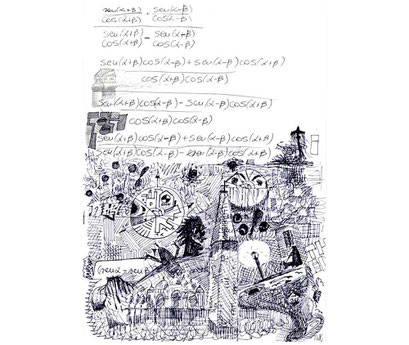 sen(α+β)/cos(α+β) + sen(α-β)/cos(α-β)
sen(α+β)/cos(α+β) - sen(α-β)/cos(α-β)
sen(α+β)cos(α-β)+sen(α-β)cos(α+β)
cos(α+β)cos(α-β)
sen(α+β)cos(α-β)-sen(α-β)cos(α+β)
cos(α+β)cos(α-β)
sen(α+β)cos(α-β)+sen(α-β)cos(α+β)
sen(α+β)cos(α-β)-sen(α-β)cos(α+β)
senα-senβ